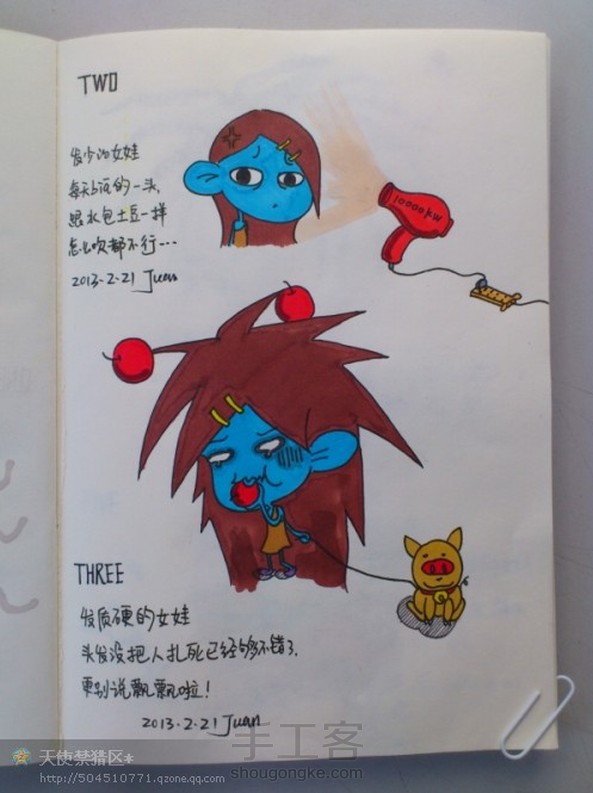 TWO
发少的女娃
每天 的一头,
跟水包土豆一样
怎么吹都不行---
2013-2-21 Juan
10000KW
THREE
发质硬的女娃
头发没把人扎死已经够不错了.
更别说飘飘啦!
2013-2-21 Juan
天使禁猎区*
http://504510771.qzone.qq.com
手工客
shougongke.com